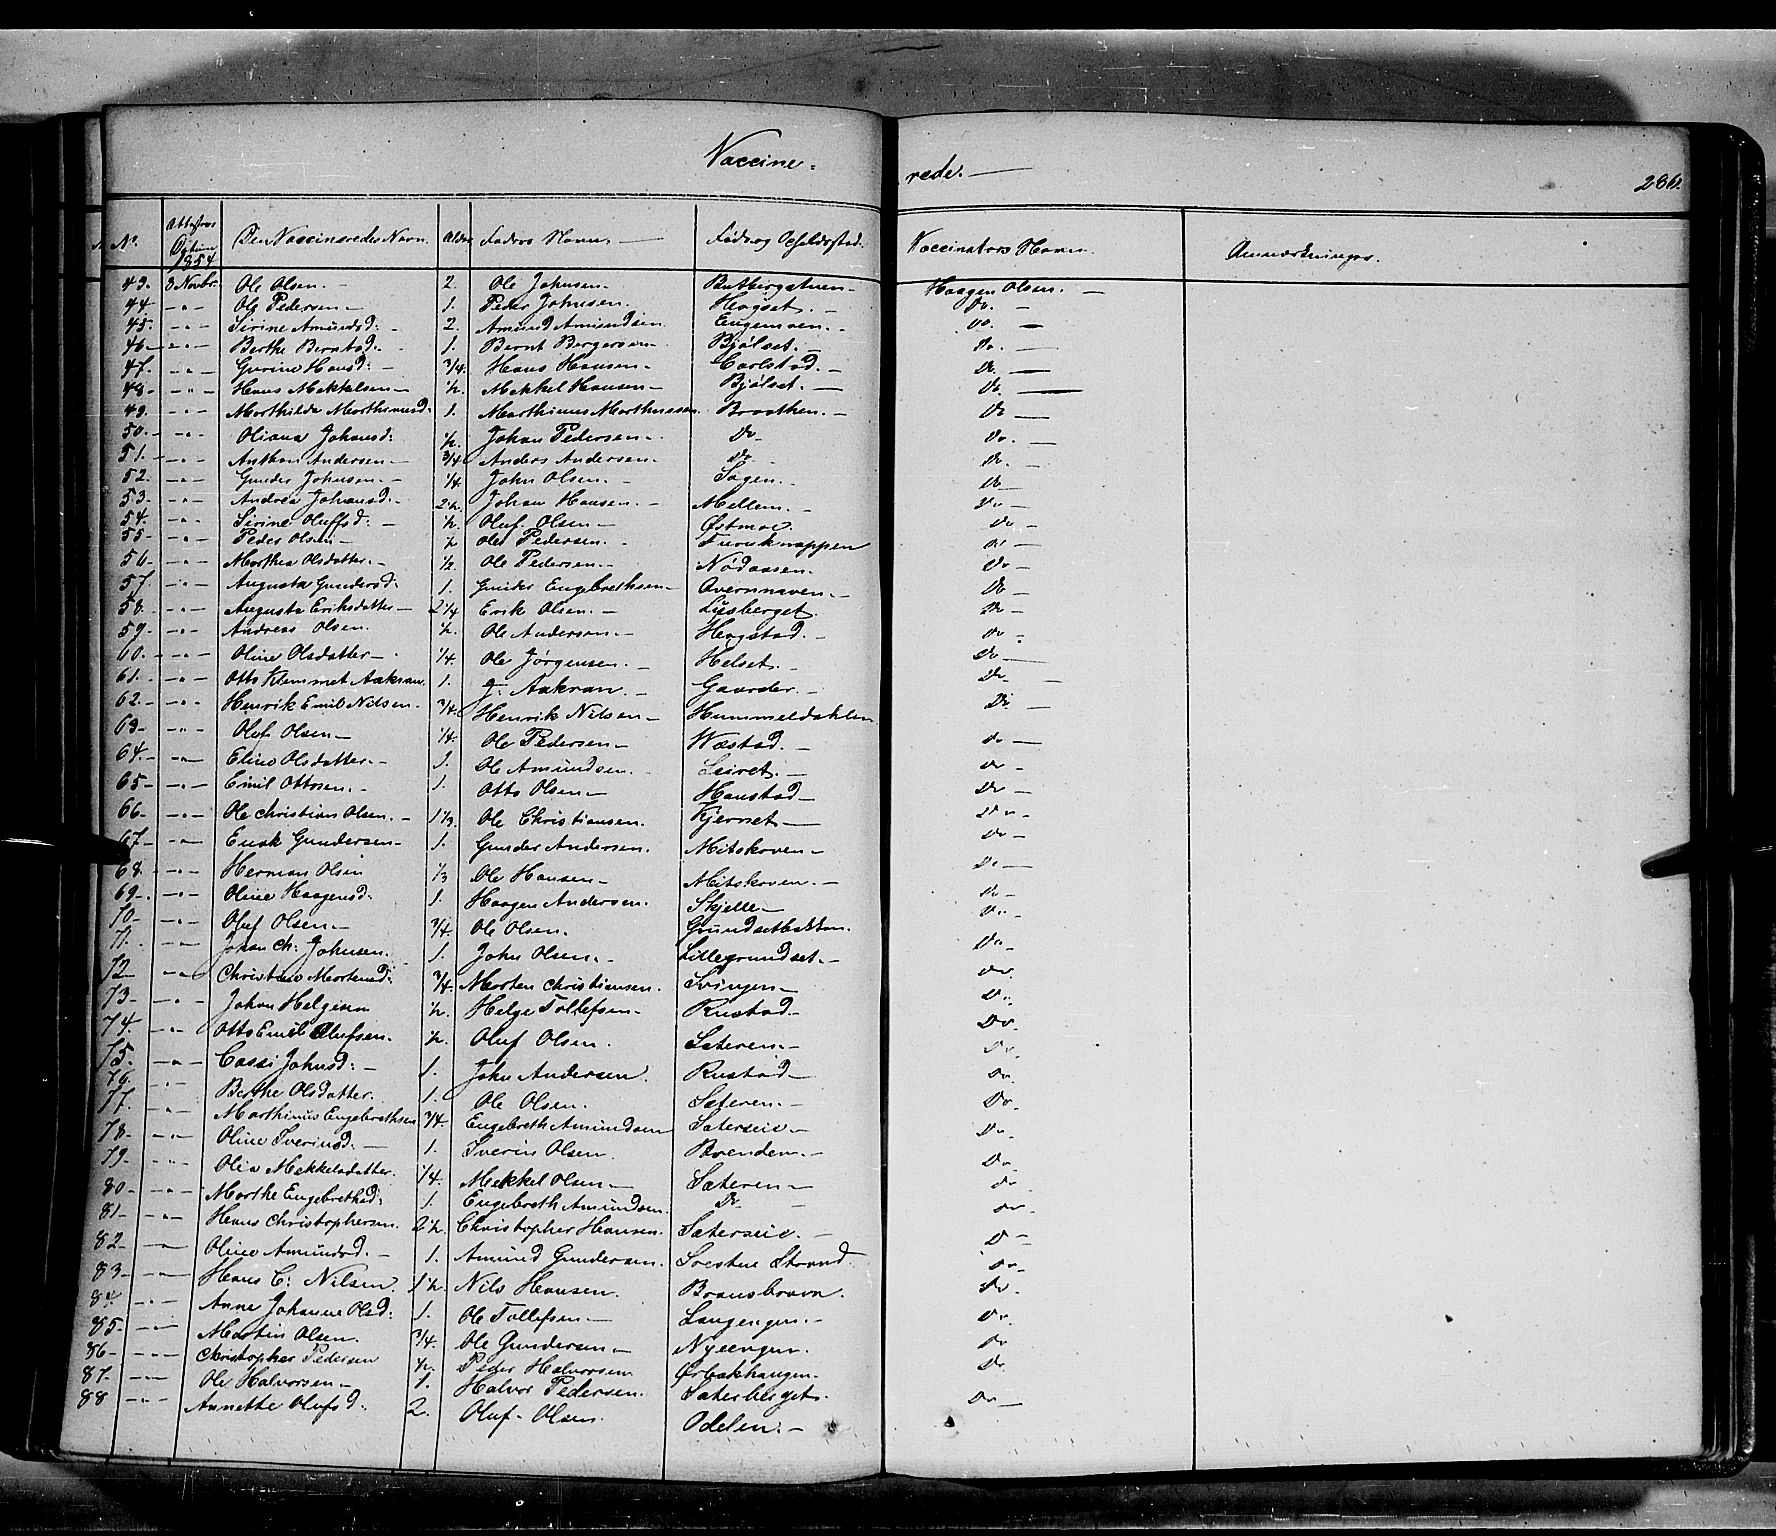 Vaccine-
rede. —
286.
No. Attestens Datum 1854 Den Vaccineredes Navn. Alder Faders Navn. Føde og Opholdssted. Vaccinators Navn. Anmærkninger.
43. 3 Novbr. Ole Olsen. 2. Ole Johnsen. Haagen Olsen. —
44. — " — Ole Pedersen. 1. Peder Johnsen. Hagset. — Do. —
45. — " — Sirine Amundsd: 2. Amund Amundsen. Engemoen. Do. —
46. — " — Berthe Berntsd. 1. Bernt Bergersen. Bjølset. — Do. —
47. — " — Gurine Hansd: 3/4. Hans Hansen. Carlstad. — Do. —
48. — " — Hans Mekkelsen — 1/2. Mekkel Hansen — Bjølset. — Do. —
49. — " — Mathilde Marthinusd. 1. Marthinus Marthinssen. Braathen. — Do —
50. — " — Oliana Johansd: 1/2. Johan Pedersen. Do Do. —
51. — " — Anthon Andersen — 3/4 Anders Andersen. Do Do. —
52. — " — Gunder Johnsen. — 1/4. John Olsen. — Sagen. Do —
53. — " — Andrea Johansd. 2 1/2. Johan Hansen. — Mellem. — Do —
54. — " — Sirine Oluffsd: — 1/2. Oluf Olsen — Østmoe Do —
55 — " — Peder Olsen — 1/2 Ole Pedersen. Furuknappen Do —
56. — " — Marthea Olsdatter. 1/2. Ole Pedersen. Nødaasen. Do —
57. — " — Augusta Gundersd: 1. Gunder Engebrethsen — Do —
58. — " — Augusta Eriksdatter — 2 1/4 Erik Olsen. — Lysberget. Do —
59. — " — Andreas Olsen. 1/2. Ole Andersen. — Hagstad. — Do —
60. — " — Oline Olsdatter — 1/4. Ole Jørgensen. — Helset. — Do —
61. — " — Otto Klemmet Aakran. 1. J. Aakran. — Gaarder. — Do —
62. — " — Henrik Emil Nilsen. 3/4. Henrik Nilsen — Hummeldahlen Do. —
63 — " — Oluf Olsen — 1/4. Ole Pedersen — Wæstad. — Do —
64. — " — Eline Olsdatter. — 1. Ole Amundsen. Leiret. — Do —
65 — " — Emil Ottosen. 1. Otto Olsen — Hanstad — Do —
66. — " — Ole Christian Olsen. — 1 1/3. Ole Christiansen. Kjernet — Do —
67. — " — Erik Gundersen — 1. Gunder Andersen. Mitskoven — Do —
68. — " — Herman Olsen 1/3 Ole Hansen — Mitskoven. — Do —
69 — " — Oline Haagensd: 1. Haagen Andersen. Skjelle — Do —
70 — " — Oluf Olsen — 3/4. Ole Olsen. Grundsetbakken. Do —
71. — " — Johan Ch: Johnsen. 1. John Olsen. — Lillegrundset. — Do —
72 — " — Christine Mortensd: 3/4. Morten Christiansen. Svingen — Do.
73 — " — Johan Helgesen 1/2. Helge Tollefsen — Rustad — Do.
74. — " — Otto Emil Olufsen. 1/2. Oluf Olsen. Sæteren — Do.
75. — " — Cassi Johnsd: — 1. John Andersen. Rustad — Do.
76. — " — Berthe Olsdatter. 1. Ole Olsen. Sæteren. — Do
77. — " — Marthinus Engebrethsen 3/4. Engebreth Amundsen Do.
78. — " — Oline Iverinsd. — 1. Iverin Olsen. Brenden — Do.
79. — " — Olia Mekkelsdatter. 1/4. Mekkel Olsen — Sæteren — Do
80. — " — Marthe Engebrethsd: 1. Engebreth Amundsen. Do — Do
81 — — " — Hans Christophersen. 2 1/2. Christopher Hansen. Do
82. — " — Oline Amundsd. — 1. Amund Gundersen. Strand Do —
83 — " — Hans C: Nilsen. 1 1/2. Nils Hansen. Do —
84 — " — Anne Johanne Olsd: 1. Ole Tollefsen — Langengen. — Do.
85. — " — Martin Olsen. 3/4. Ole Gundersen — Nyeengen. Do
86 — " — Christopher Pedersen 1/2. Peder Halvorsen Ørbækhaugen. Do
87. — " — Ole Halvorsen — 1. Halvor Pedersen. Sæterberget. Do.
88 — " — Annette Olufsd: 2. Oluf Olsen. Odelen. — Do —